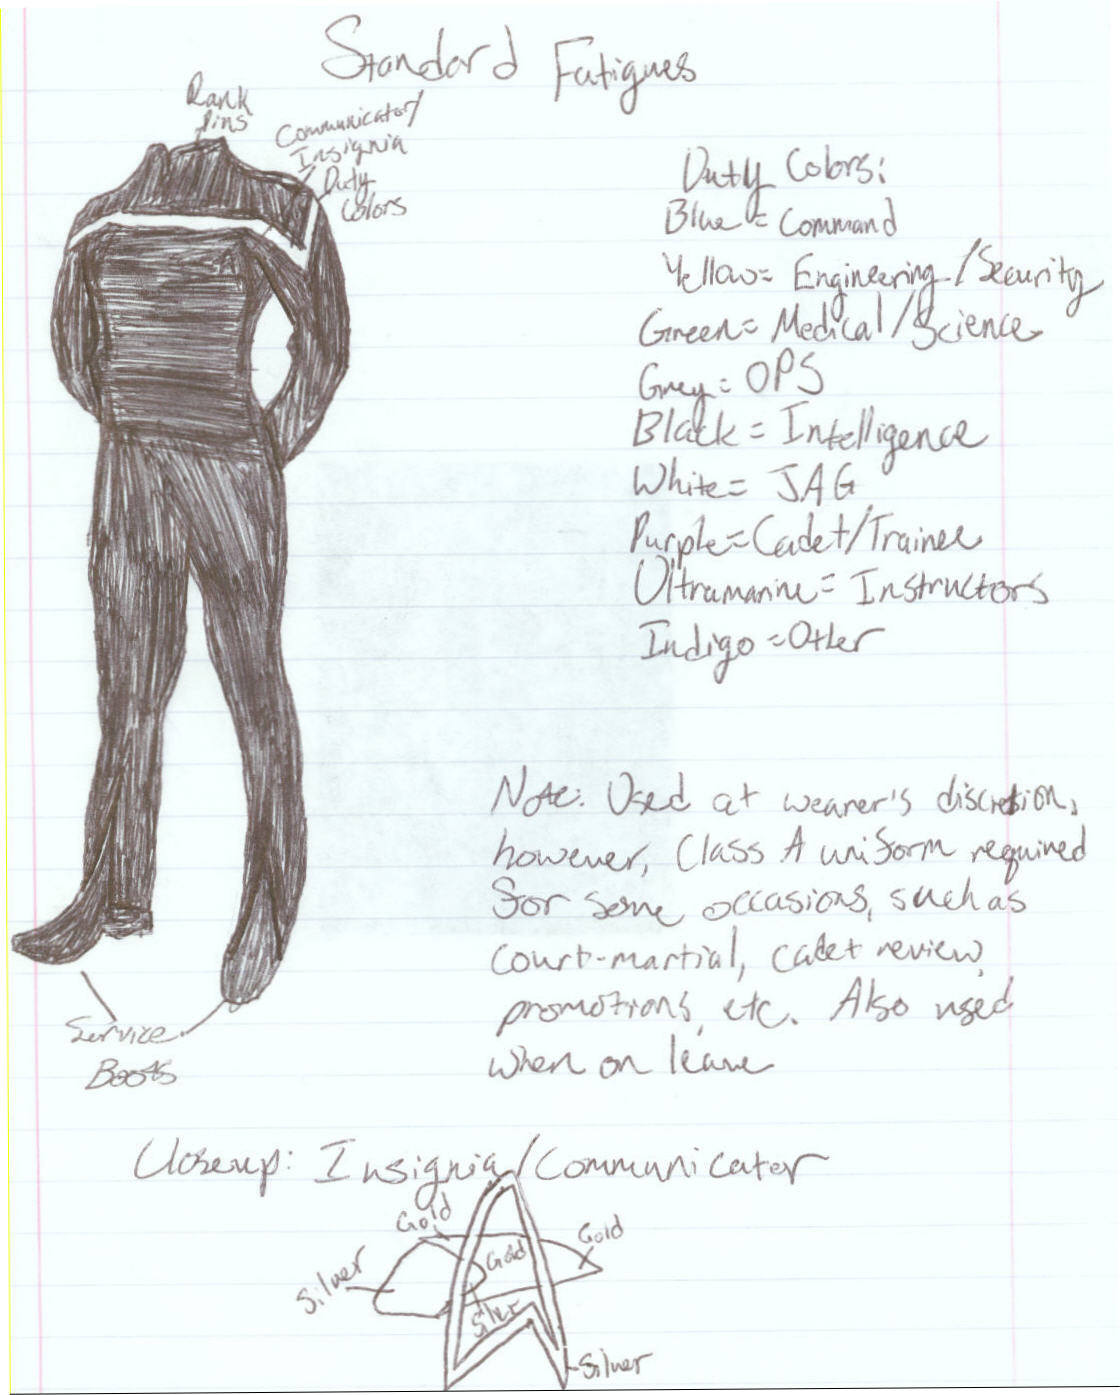 Standard Fatigues
Rank
Pins
Communicator/
Insignia
Duty
Colors
Duty Colors:
Blue = Command
Yellow = Engineering/Security
Green = Medical/Science
Grey = OPS
Black = Intelligence
White = JAG
Purple = Cadet/Trainee
Ultramarine = Instructors
Indigo = Other
Note: Used at wearer's discretion,
however, Class A uniform required
for some occasions, such as
court-martial, cadet review,
promotions, etc. Also used
when on leave
Service
Boots
Closeup: Insignia/Communicator
Gold
Gold
Gold
Silver
Silver
Silver